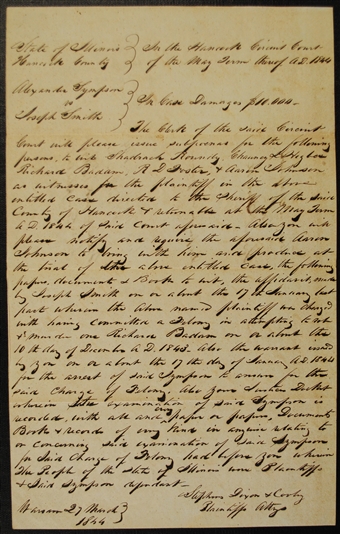 State of Illinois } In the Hancock Circuit Court
Hancock County } of the May Term thereof A.D. 1844
Alexander Sympson }
vs } In Case Damages $10.000-
Joseph Smith }
The Clerk of the said Circuit
Court will please issue subpoenas for the following
persons, to wit Shadrach Roundy Chauncey L Higbee
Richard Badam, R D Foster, & Aaron Johnson
as witnesses for the plaintiff in the above
entitled case directed to the Sheriff of the said
County of Hancock & returnable at the May Term
A.D. 1844 of said Court aforesaid - Also you will
please notify and require the aforesaid Aaron
Johnson to bring with him and produce at
the trial of the above entitled case, the following
papers, documents & Book to wit, the affidavit made
by Joseph Smith on or about the 17th January last
past wherein the above named plaintiff was charged
with having committed a Felony in attempting to rob
& murder one Richard Badam on or about the
10th day of December A.D. 1843. Also the warrant issued
by you on or about the 17th day of January A.D. 1844
for the arrest of said Sympson to answer for the
said Charge of Felony, Also your Justice Docket
wherein the examination of said Sympson is
recorded, with all and every paper or papers, Documents
Book & record of any kind in anywise relating to
or concerning said examination of said Sympson
for said Charge of Felony had before you wherein
The People of the State of Illinois were Plaintiffs
& said Sympson defendant -
Stephens Dixon &
Warsaw 27 March } Plaintiffs Attys
1844